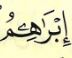 إِبْرَٰهِـۧمُ